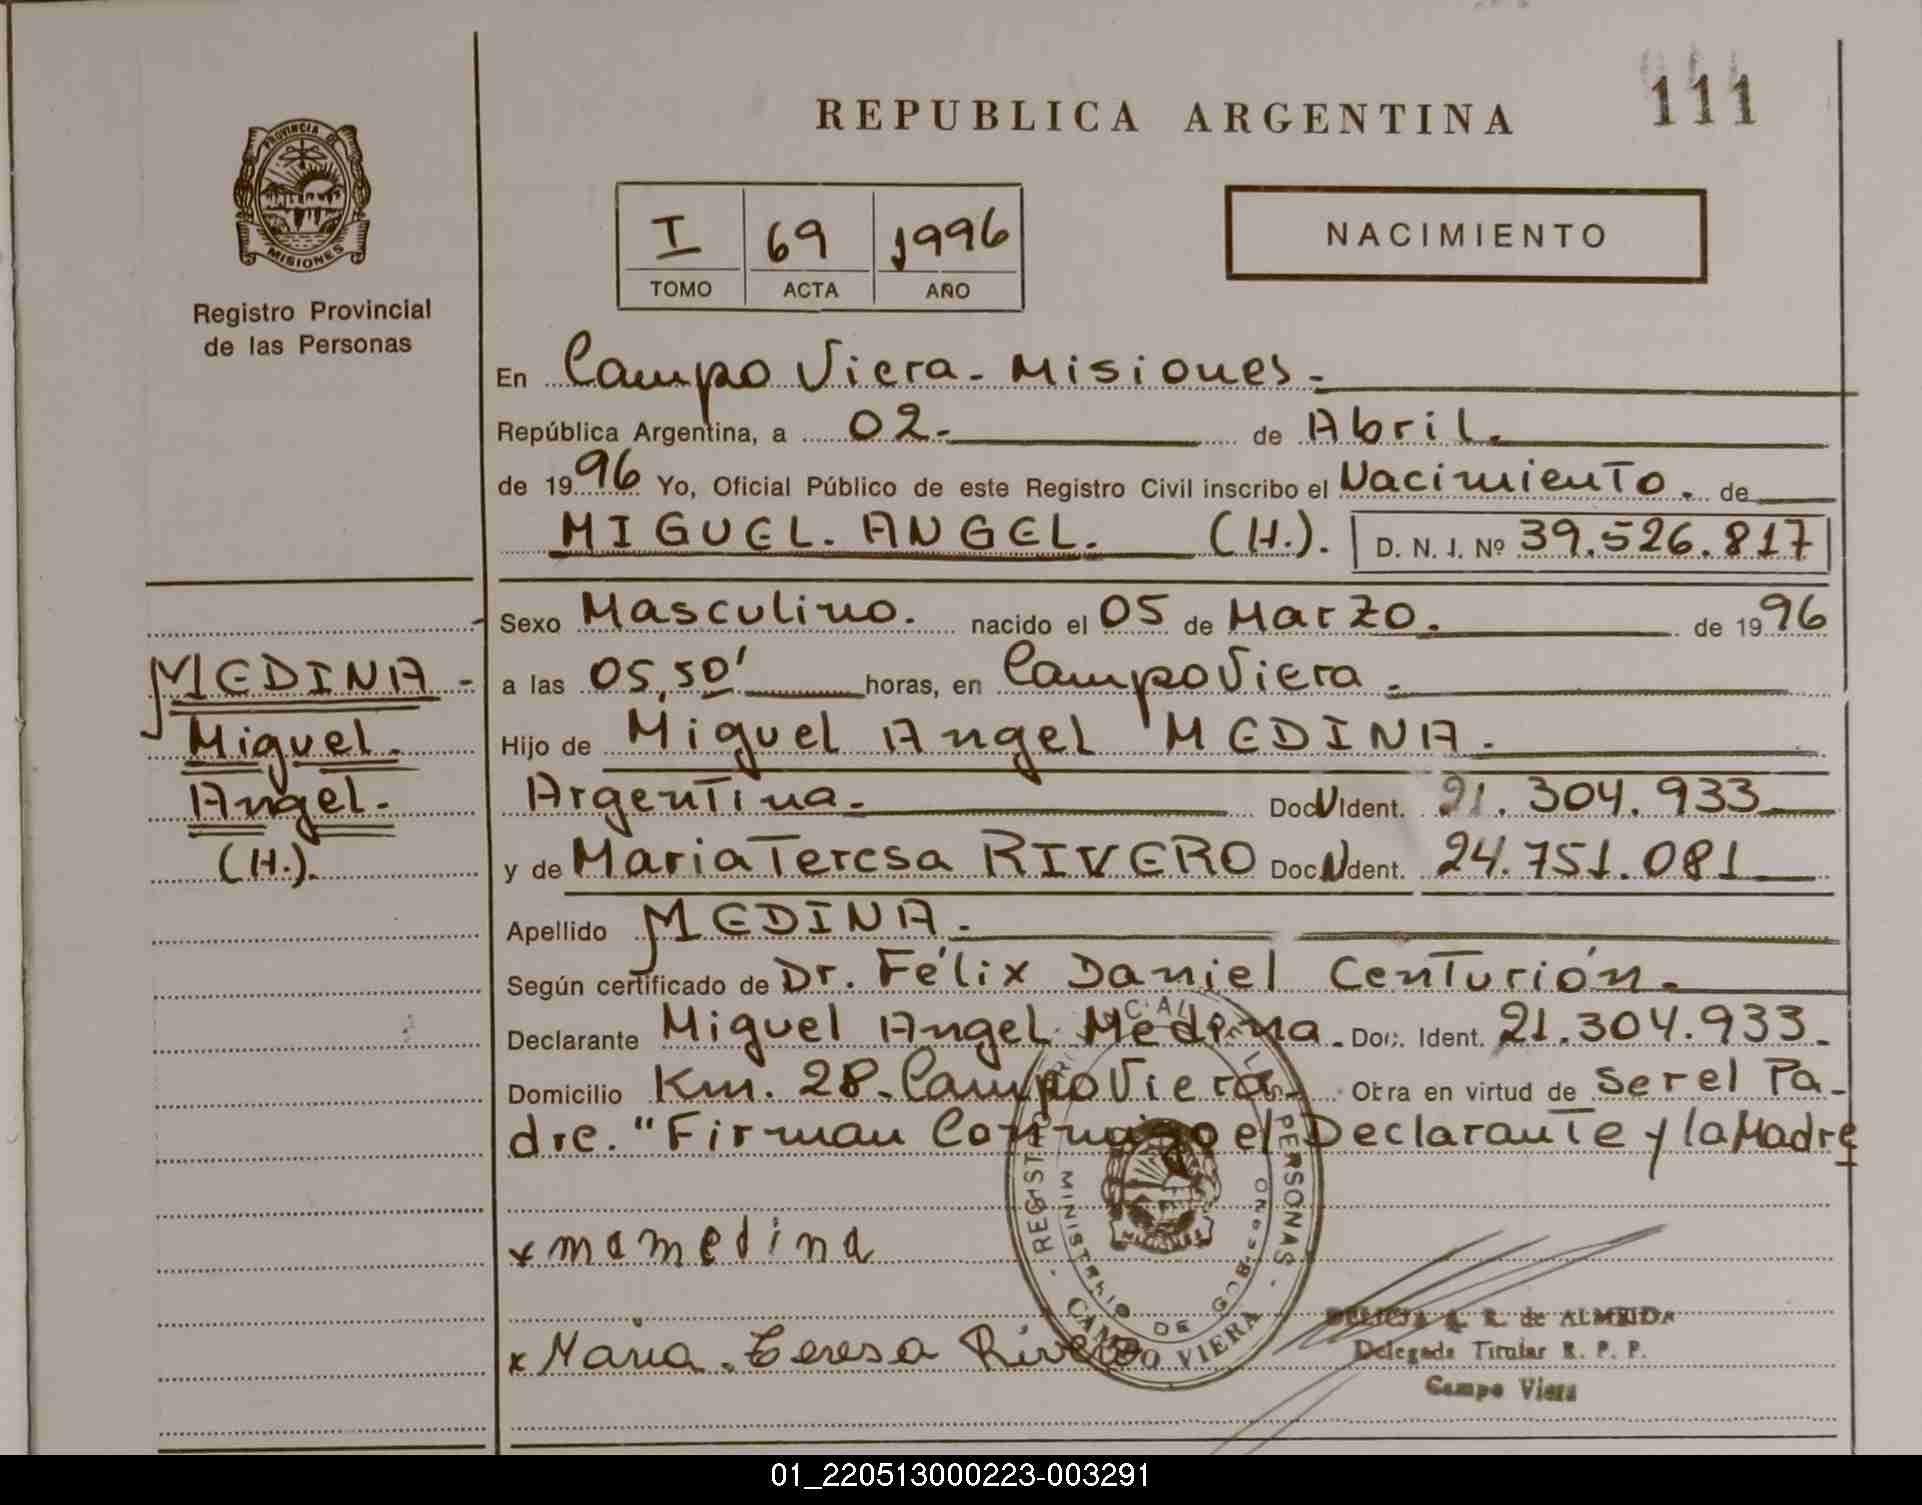 REPUBLICA ARGENTINA
111
PROVINCIA DE
MISIONES
Registro Provincial
de las Personas
I 69 1996
TOMO ACTA AÑO
NACIMIENTO
En Campo Viera - Misiones -
República Argentina, a 02. de Abril.
de 1996 Yo, Oficial Público de este Registro Civil inscribo el Nacimiento. de
MIGUEL. ANGEL. (H.). D. N. I. Nº 39.526.817
Sexo Masculino. nacido el 05 de Marzo. de 1996
a las 05,50' horas, en Campo Viera.
Hijo de Miguel Angel MEDINA.
Argentina. Doc N Ident. 21.304.933
y de Maria Teresa RIVERO Doc N dent. 24.751.081
Apellido MEDINA.
Según certificado de Dr. Félix Daniel Centurión.
Declarante Miguel Angel Medina. Doc. Ident. 21.304.933.
Domicilio Km. 28- Campo Viera. Obra en virtud de Ser el Pa-
dre. "Firman Conmigo el Declarante y la Madre
MEDINA -
Miguel.
Angel.
(H.).
x mamedina
x Maria. Teresa Rivero
PERSONAS
MINISTERIO DE GOBIERNO
CAMPO VIERA
DELICIA A. R. de ALMEIDA
Delegada Titular R. P. P.
Campo Viera
01_220513000223-003291